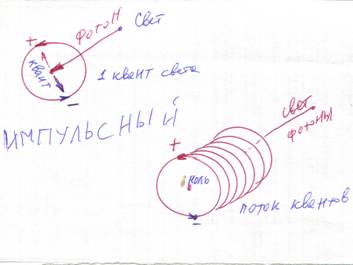 Свет
ФОТОН
+
КВАНТ
–
1 квант света
ИМПУЛЬСНЫЙ
свет
ФОТОНЫ
+
ноль
–
поток квантов